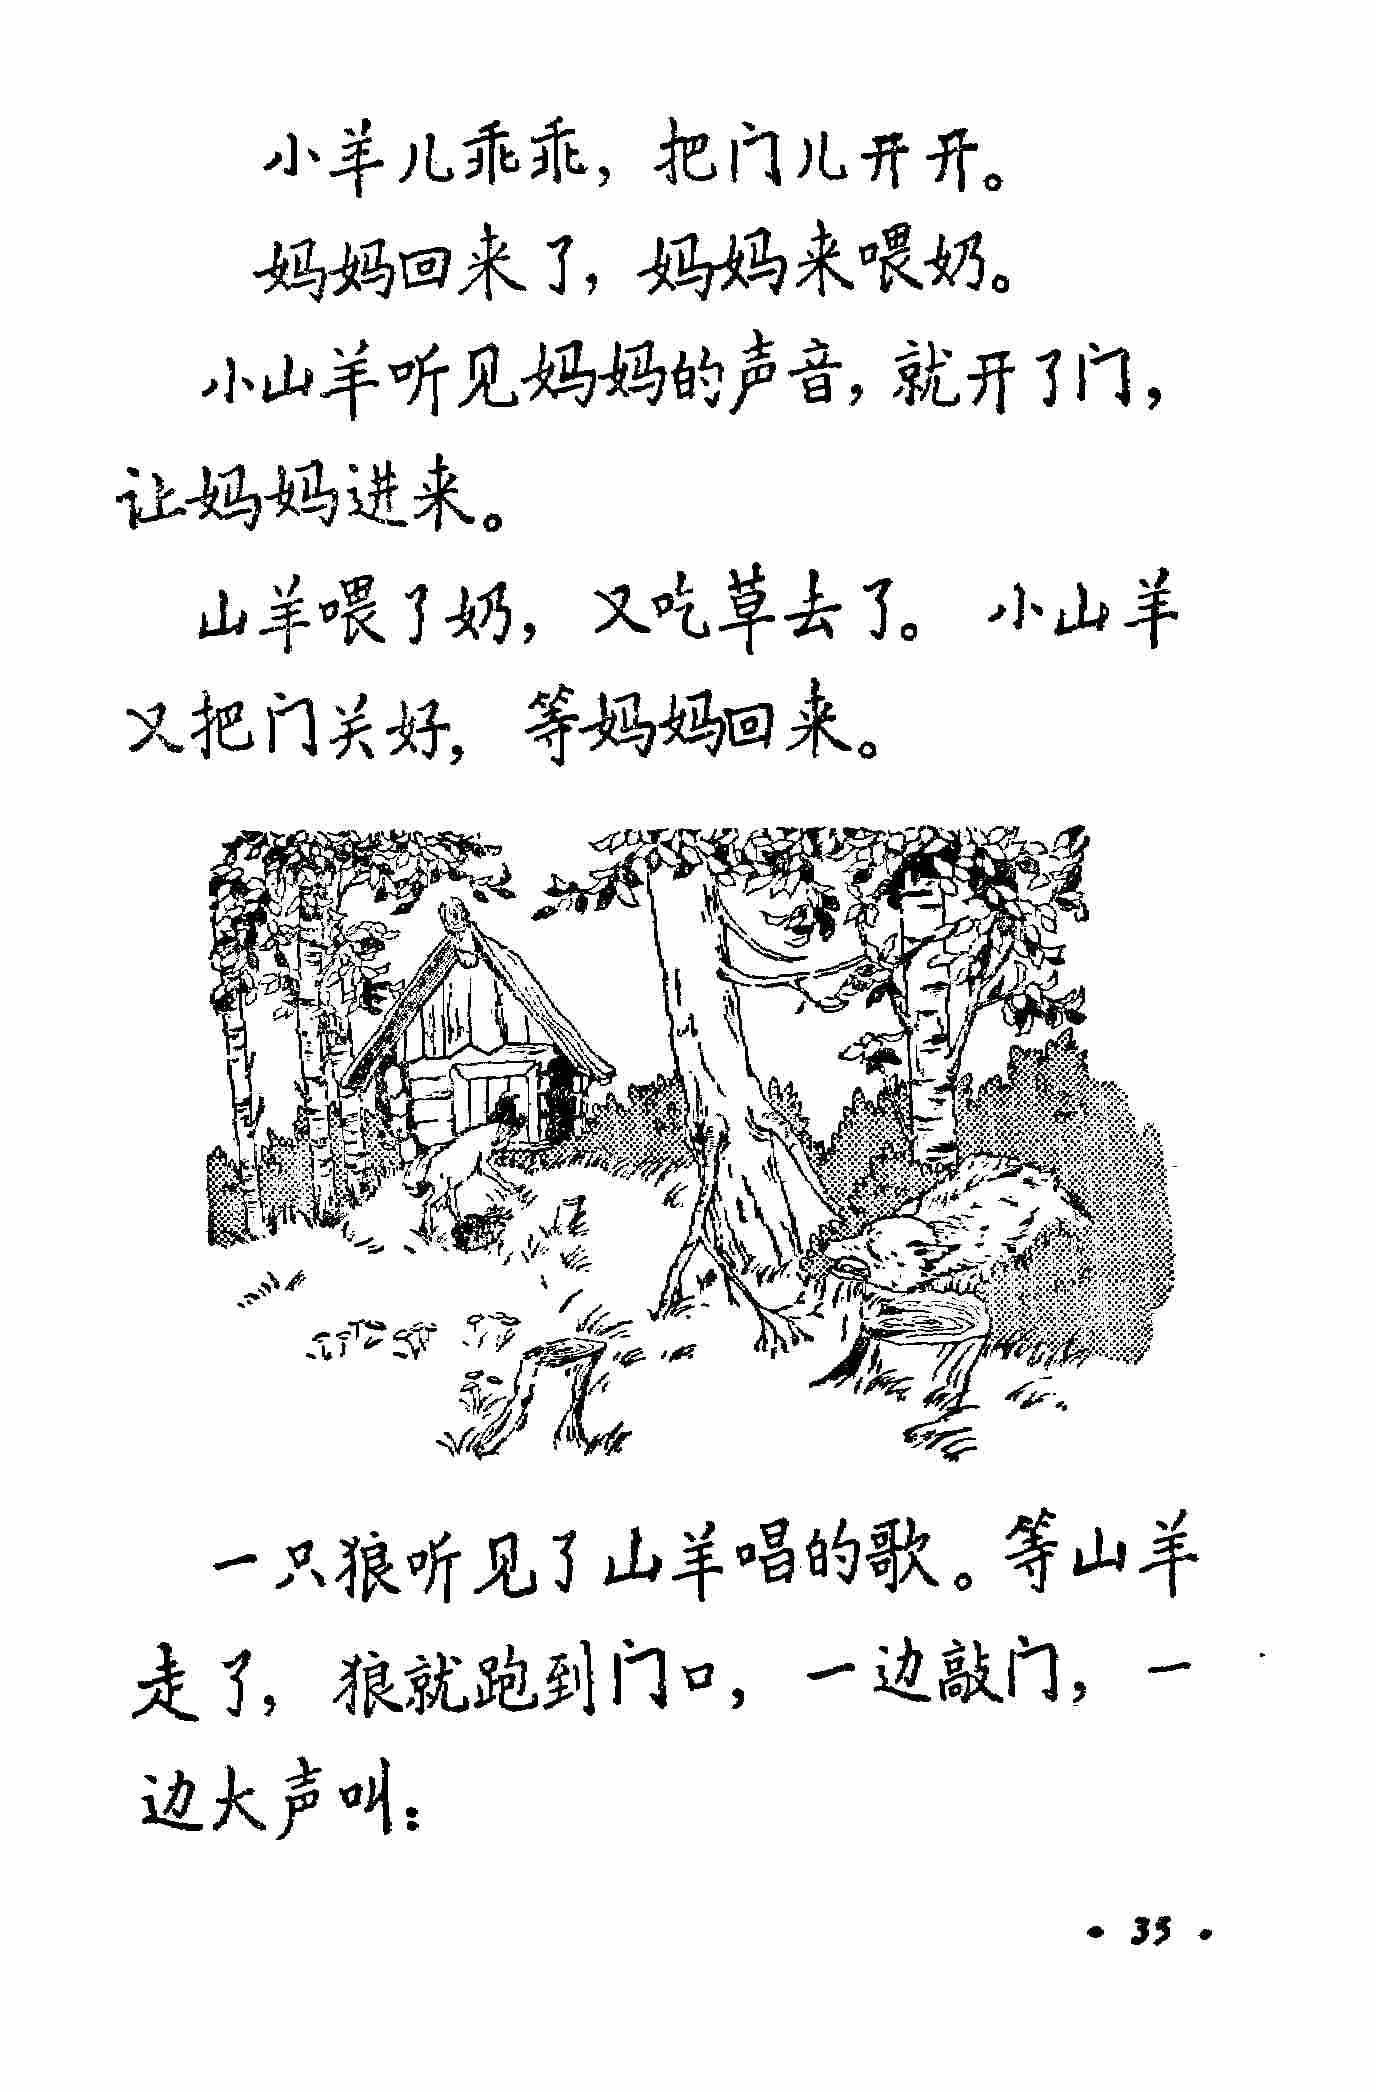 小羊儿乖乖，把门儿开开。
妈妈回来了，妈妈来喂奶。
小山羊听见妈妈的声音，就开了门，
让妈妈进来。
山羊喂了奶，又吃草去了。小山羊
又把门关好，等妈妈回来。
一只狼听见了山羊唱的歌。等山羊
走了，狼就跑到门口，一边敲门，一
边大声叫：
· 35 ·